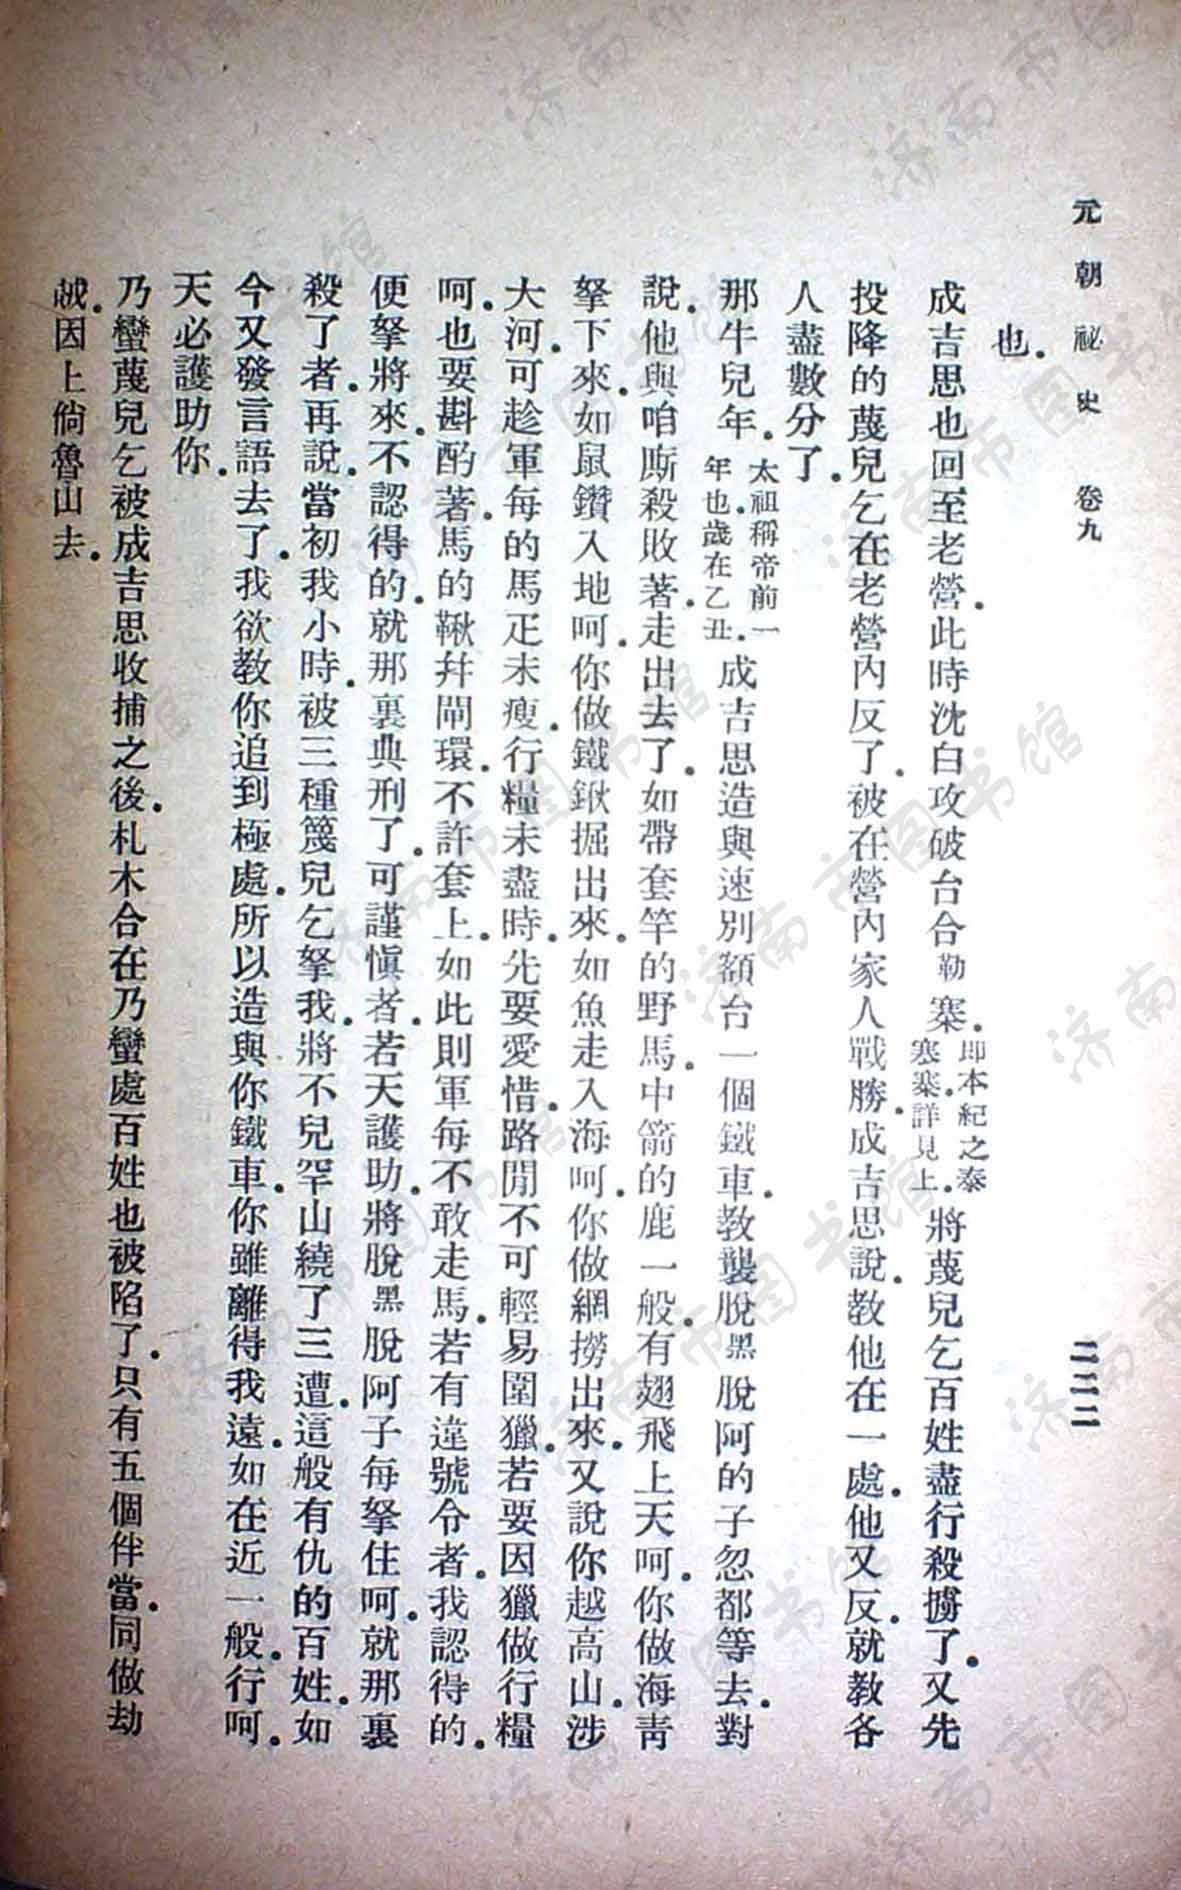 元朝祕史 卷九 二二二
也.
成吉思也回至老營.此時沈白攻破台合勒寨.即本紀之泰寒寨.詳見上.將蔑兒乞百姓盡行殺擄了.又先
投降的蔑兒乞在老營內反了.被在營內家人戰勝.成吉思說.教他在一處.他又反.就教各
人盡數分了.
那牛兒年.太祖稱帝前一年也.歲在乙丑.成吉思造與速別額台一個鐵車.教襲脫黑脫阿的子忽都等去.對
說.他與咱廝殺敗著.走出去了.如帶套竿的野馬.中箭的鹿一般.有翅飛上天呵.你做海靑
拏下來.如鼠鑽入地呵.你做鐵鍬掘出來.如魚走入海呵.你做網撈出來.又說你越高山.涉
大河.可趁軍每的馬疋未瘦.行糧未盡時.先要愛惜.路閒不可輕易圍獵.若要因獵做行糧
呵.也要斟酌著.馬的鞦幷閘環.不許套上.如此則軍每不敢走馬.若有違號令者.我認得的.
便拏將來.不認得的.就那裏典刑了.可謹愼者.若天護助.將脫黑脫阿子每拏住呵.就那裏
殺了者.再說.當初我小時.被三種篾兒乞拏我.將不兒罕山繞了三遭.這般有仇的百姓.如
今又發言語去了.我欲教你追到極處.所以造與你鐵車.你雖離得我遠.如在近一般.行呵.
天必護助你.
乃蠻蔑兒乞被成吉思收捕之後.札木合在乃蠻處百姓也被陷了.只有五個伴當.同做劫
賊.因上倘魯山去.
济南市图书馆